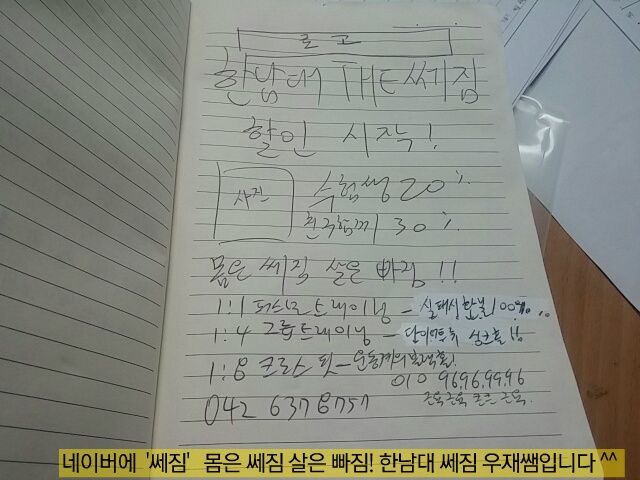 로고
한남대 THE 쎄짐
할인 시작!
사진 수험생 20%
친구함께 30%
몸은 쎄짐 살은 빠짐!!
1:1 퍼스널트레이닝 - 실패시환불100%
1:4 그룹트레이닝 - 다이어트
1:8 크로스핏 -
010 9696.9996
042 637 8757
네이버에 '쎄짐' 몸은 쎄짐 살은 빠짐! 한남대 쎄짐 우재쌤입니다 ^^